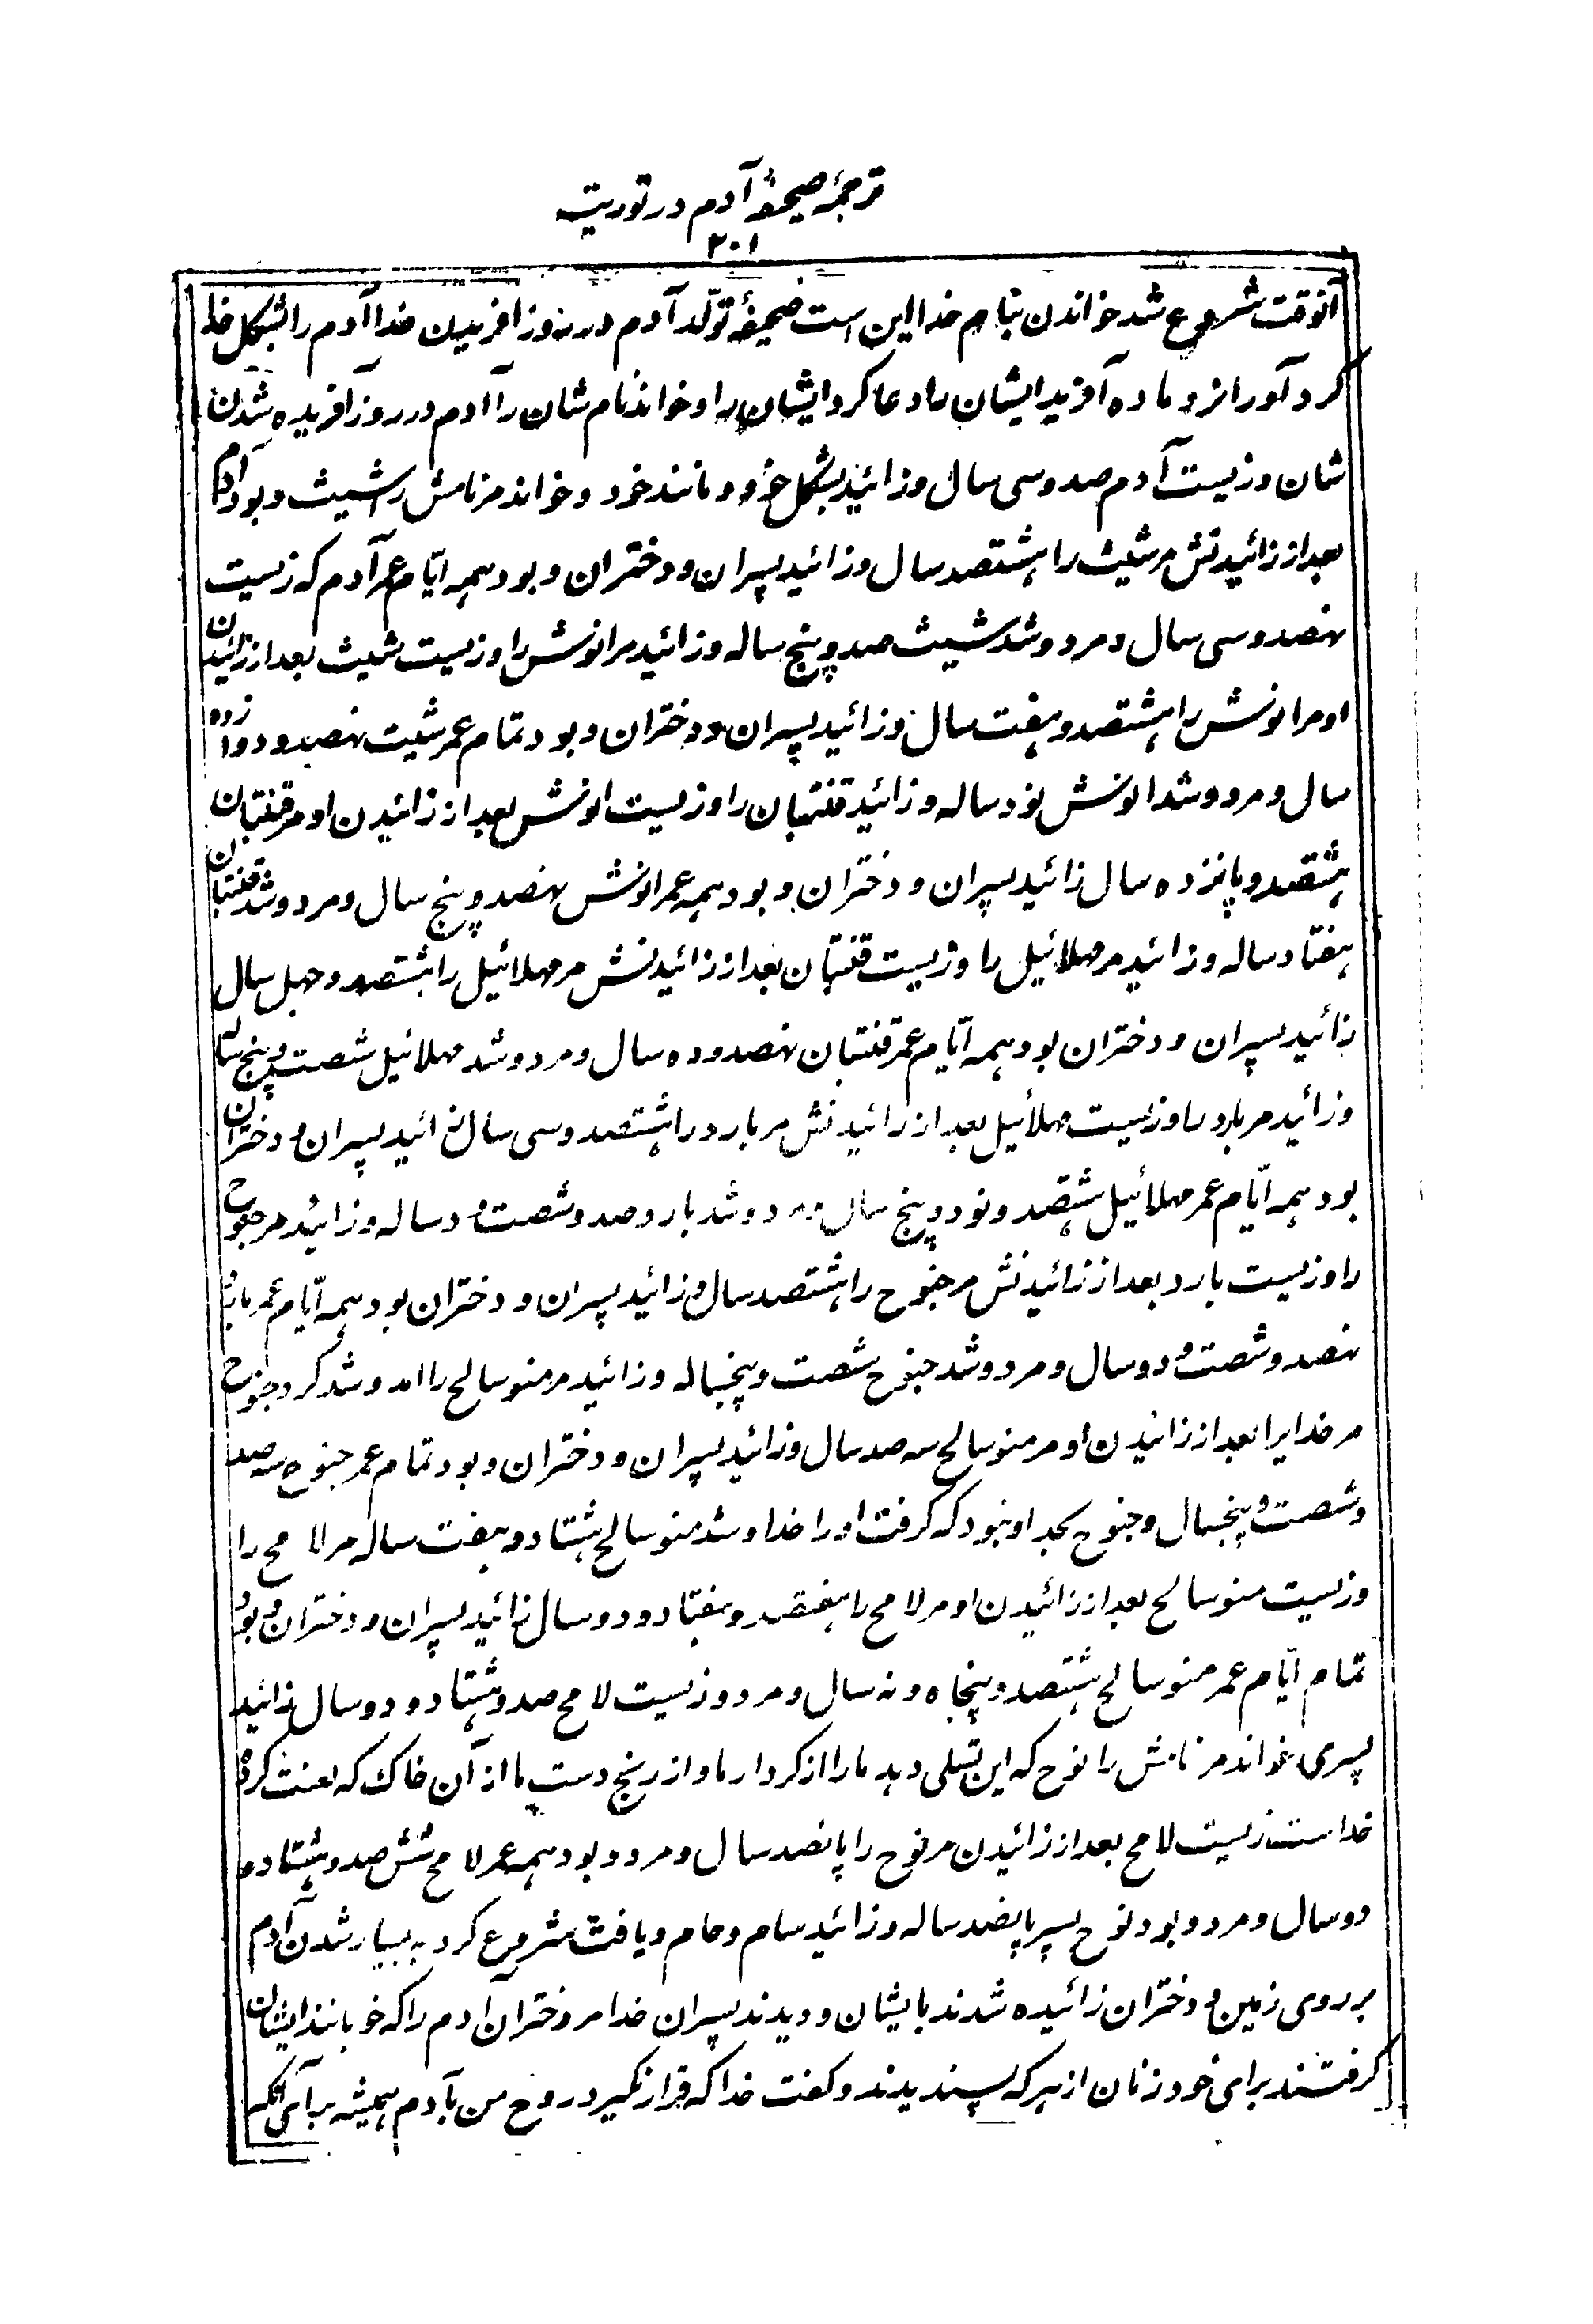 ترجمهٔ صحیفهٔ آدم در توریت
۲۰۱
آنوقت شروع شد خواندن بنام خدا این است صحیفهٔ تولّد آدم در روز افریدن خدا آدم را بشکل خدا
کرد آورا نر و ماده آفرید ایشان را و دعا کرد ایشان را و خواند نام شان را آدم در روز آفریده شدن
شان و زیست آدم صد و سی سال و زائید بشکل خود و مانند خود و خواند مر نامش را شیث و بود ایّام
بعد از زائیدنش مر شیث را هشتصد سال و زائید پسران و دختران و بود همه ایّام عمر آدم که زیست
نهصد و سی سال و مرد و شد شیث صد و پنج ساله و زائید مر انوش را و زیست شیث بعد از زائیدن
او مر انوش را هشتصد و هفت سال و زائید پسران و دختران و بود تمام عمر شیث نهصد و دوازده
سال و مرد و شد انوش نود ساله و زائید قنتبان را و زیست انوش بعد از زائیدن او مر قنتبان
هشتصد و پانزده سال زائید پسران و دختران و بود همه عمر انوش نهصد و پنج سال و مرد و شد قنتبان
هفتاد ساله و زائید مر مهلائیل را و زیست قنتبان بعد از زائیدنش مر مهلائیل را هشتصد و چهل سال
زائید پسران و دختران بود همه ایّام عمر قنتبان نهصد و ده سال و مرد و شد مهلائیل شصت و پنج سا
و زائید مر یارد را و زیست مهلائیل بعد از زائیدنش مر یارد را هشتصد و سی سال زائید پسران و دختران
بود همه ایّام عمر مهلائیل هشتصد و نود و پنج سال و مرد و شد یارد صد و شصت و دساله و زائید مر خنوخ
را و زیست یارد بعد از زائیدنش مر خنوخ را هشتصد سال و زائید پسران و دختران بود همه ایّام عمر یارد
نهصد و شصت و دو سال و مرد و شد خنوخ شصت و پنجساله و زائید مر منوسالح را امد و شد کرد خنوخ
مر خدایرا بعد از زائیدن او مر منوسالح سه صد سال و زائید پسران و دختران و بود تمام عمر خنوخ سه صد
و شصت و پنجسال و خنوخ بجد او نبود که گرفت او را خدا و شد منوسالح هشتاد و هفت ساله مر لامح را
و زیست منوسالح بعد از زائیدن او مر لامح را هفتصد و هفتاد و دو سال زائید پسران و دختران و بود
تمام ایّام عمر منوسالح هشتصد و پنجاه و نه سال و مرد و زیست لامح صد و هشتاد و دو سال زائید
پسری خواند مر نامش را نوح که این تسلی دهد ما را از کردار ما و از رنج دست ما از آن خاک که لعنت کرده
خداست زیست لامح بعد از زائیدن مر نوح را پانصد سال و مرد و بود همه عمر لامح شش صد و هشتاد و
دو سال و مرد و بود نوح پسر پانصد ساله و زائید سام و حام و یافث شروع کرد به بسیار شدن آدم
بر روی زمین و دختران زائیده شدند بایشان و دیدند پسران خدا مر دختران آدم را که خوبانند ایشان
گرفتند برای خود زنان از هر که پسندیدند و گفت خدا که قرار نگیرد روح من بآدم همیشه برای آنکه